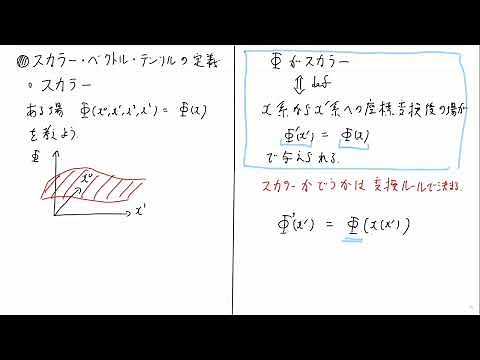 スカラー・ベクトル・テンソルの定義
○ スカラー
ある場 Φ(x⁰,x¹,x²,x³) = Φ(x)
を考えよう.
Φ
x⁰
x¹
Φがスカラー
⇕ def
x系からx'系への座標変換後の場が
Φ'(x') = Φ(x)
で与えられる.
スカラーかどうかは変換ルールで決まる.
Φ'(x') = Φ(x(x'))